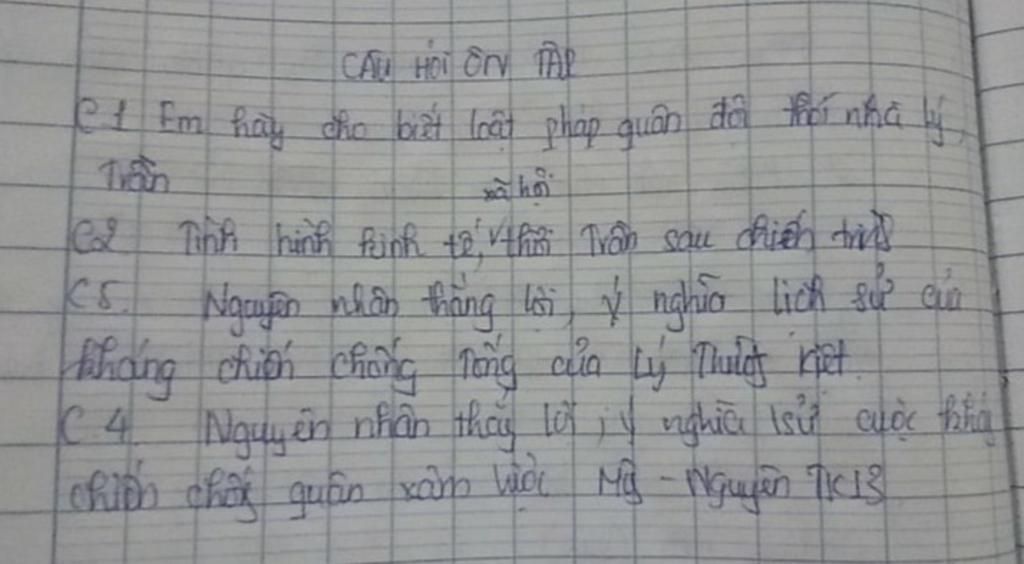 CÂU HỎI ÔN TẬP
C1 Em hãy cho biết luật pháp quân đội thời nhà Lý,
Trần
xã hội
C2 Tình hình kinh tế, V thời Trần sau chiến tranh
C5. Nguyên nhân thắng lợi, ý nghĩa lịch sử của
kháng chiến chống Tống của Lý Thường Kiệt
C4 Nguyên nhân thắng lợi, ý nghĩa lsử cuộc kháng
chiến chống quân xâm lược Mg - Nguyên TK13